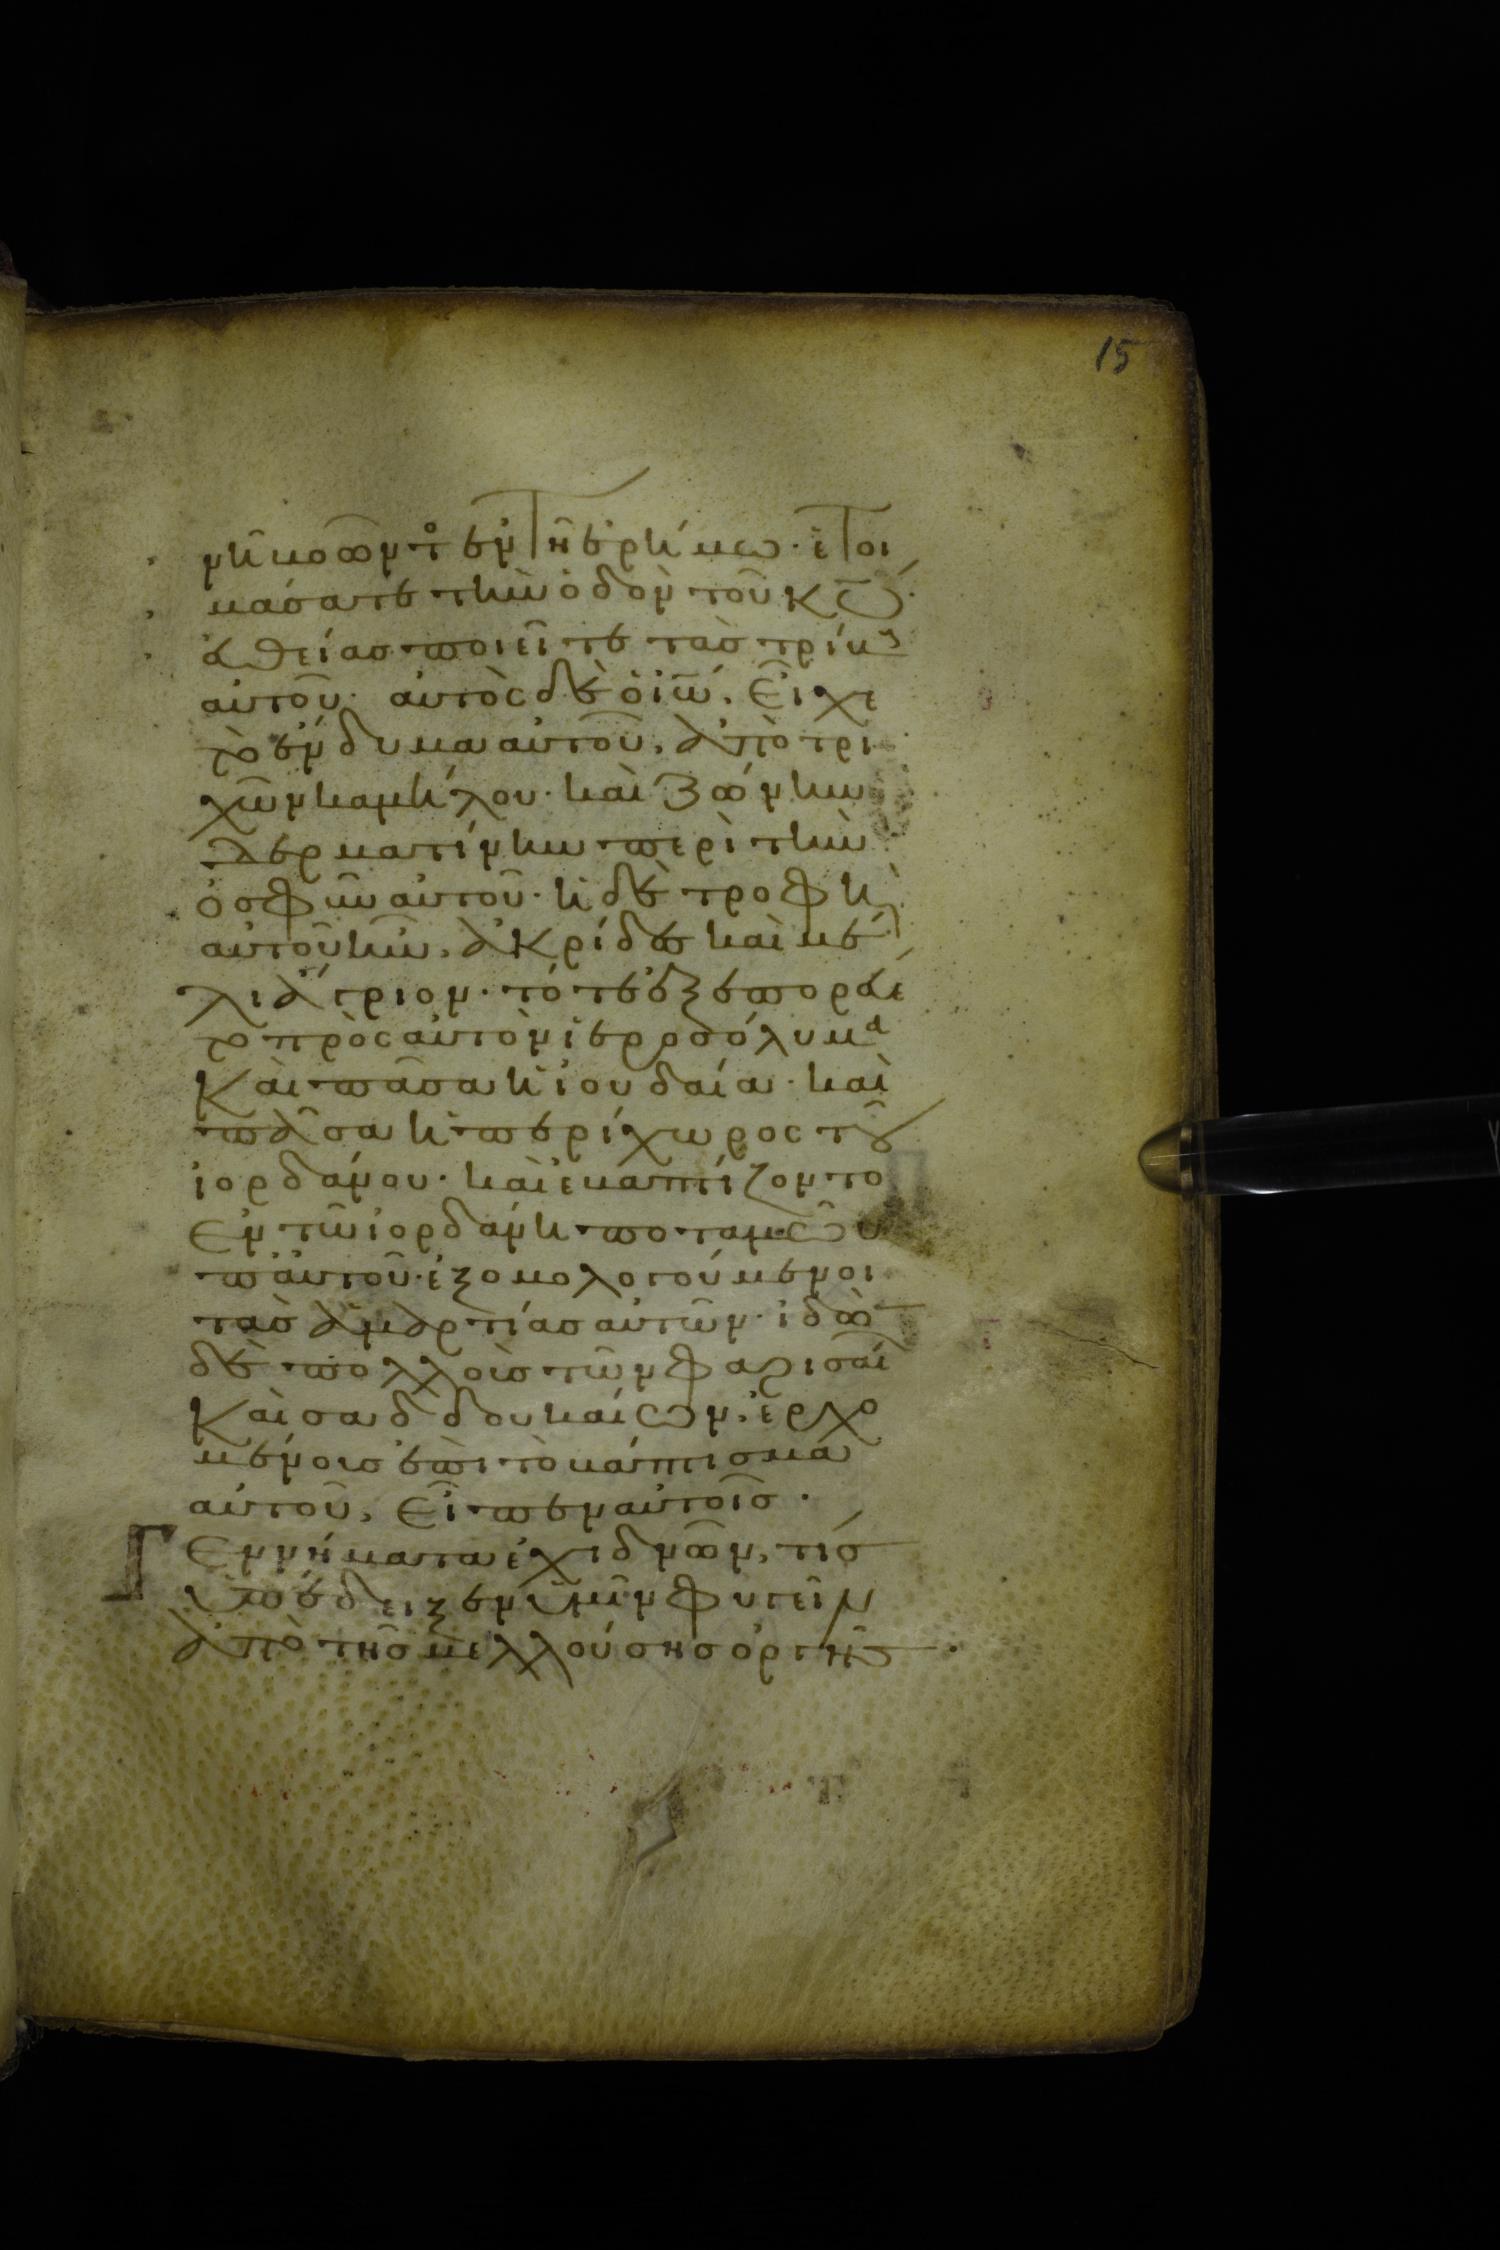 15
νὴ βοῶντος ἐν τῆ ἐρήμω· ἑτοι
μάσατε τὴν ὁδὸν τοῦ κυ·
εὐθείας ποιεῖτε τὰς τρίβους
αὐτοῦ· αὐτὸς δὲ ὁ ἰω, εἶχε
τὸ ἔνδυμα αὐτοῦ, ἀπὸ τρι
χῶν καμήλου· καὶ ζώνην
δερματίνην περὶ τὴν
ὀσφῦν αὐτοῦ· ἡ δὲ τροφὴ
αὐτοῦ ἦν, ἀκρίδες καὶ μέ
λι ἄγριον· τότε ἐξεπορεύε
το πρὸς αὐτὸν ἱεροσόλυμα
καὶ πᾶσα ἡ ἰουδαία· καὶ
πᾶσα ἡ περίχωρος τοῦ
ἰορδάνου· καὶ ἐβαπτίζοντο
ἐν τῶ ἰορδάνη ποταμῶ ὑ
π' αὐτοῦ· ἐξομολογούμενοι
τὰς ἁμαρτίας αὐτῶν· ἰδὼν
δὲ πολλοὺς τῶν φαρισαί
καὶ σαδδουκαίων, ἐρχο
μένους ἐπὶ τὸ βάπτισμα
αὐτοῦ, εἶπεν αὐτοῖς·
Γεννήματα ἐχιδνῶν, τίς
ὑπέδειξεν ὑμῖν φυγεῖν
ἀπὸ τῆς μελλούσης ὀργῆς·